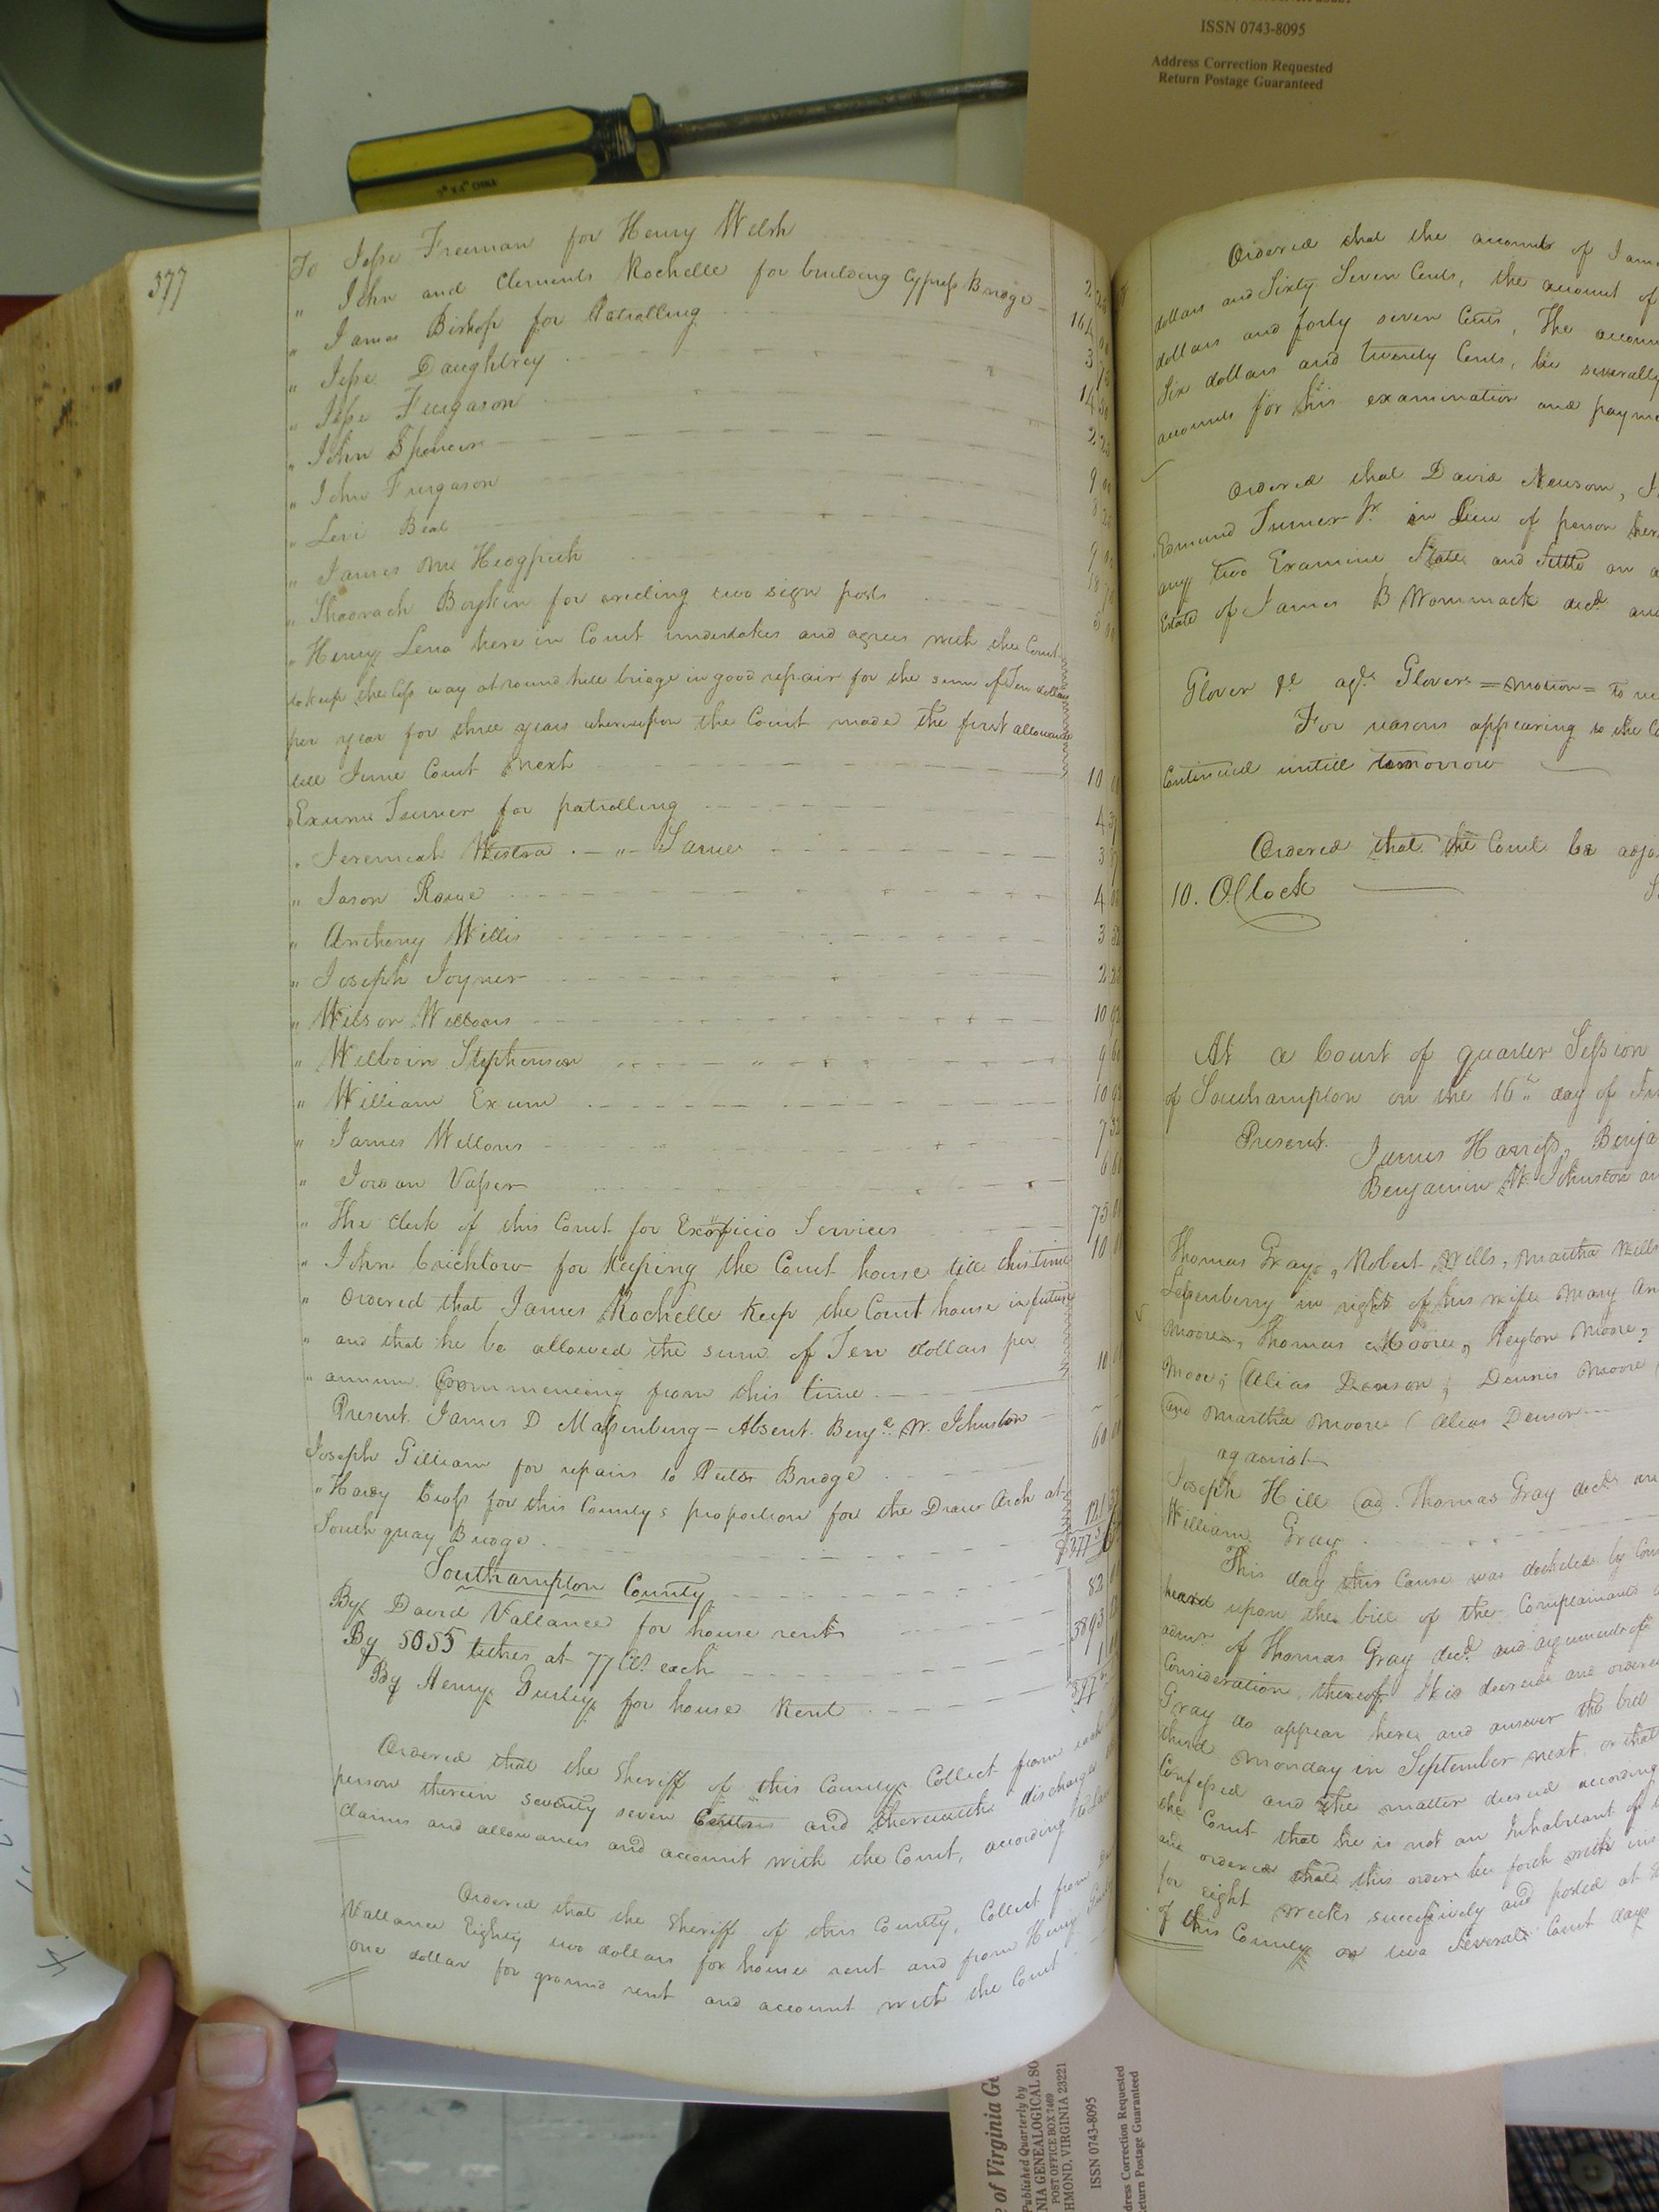 ISSN 0743-8095
Address Correction Requested
Return Postage Guaranteed
377
To Jesse Freeman for Henry Welsh
" John and Clements Rochelle for building Cypress Bridge
" James Bishop for Patrolling
" Jesse Daughtrey
" Jesse Furgason
" John Spencer
" John Furgason
" Levi Beal
" James
" Shadrach Boykin for erecting two sign posts
" Henry here in Court undertakes and agrees with the Court
to keep the way at round hill bridge in good repair for the sum of Ten dollars
per year for three years whereupon the Court made the first allowance
till June Court next 10
Exum Turner for patrolling 4
" Jeremiah " Same 3
" Jason Rowe 4
" Anthony Willis 3
" Joseph Joyner 2
" Wilson Wellons 10
" Stephenson 9
" William Exum 10
" James Wellons 7
" Jordan Vasser 6
" The Clerk of this Court for Exofficio Services 75
" John Crichlow for keeping the Court house till this time 10
" Ordered that James Rochelle keep the Court house in future
" and that he be allowed the sum of Ten dollars per
" annum Commencing from this time 10
Present. James D Massenburg – Absent. Benja. W. Johnston
Joseph Gilliam for repairs to Bridge 60
" Hardy Cross for this County s proportion for the Draw Arch at
South quay Bridge 121
Southampton County
By David Vallance for house rent 82
By 5055 tithes at 77 Cts. each
By Henry Gurley for house Rent 1
Ordered that the Sheriff of this County Collect from each
person therein seventy seven Cents and therewith discharge
claims and allowances and account with the Court, according to Law
Ordered that the Sheriff of this County, Collect from
Vallance Eighty two dollars for house rent and from Henry
one dollar for ground rent and account with the Court
Ordered that the accounts of Jam
dollars and Sixty Seven Cents, the account of
dollars and forty seven Cents, The accoun
Six dollars and twenty Cents, be severally
accounts for his examination and payme
Ordered that David Newsom,
Edmund Turner Jr. in lieu of person
any two Examine State and Settle an a
Estate of James B Wommack decd. an
Glover agt. Glover = motion = to
For reasons appearing to the C
Continued untill tomorrow
Ordered that the Court be adjo
10. OClock
At a Court of quarter Session
of Southampton on the 16th day of
Present. James Harriss, Benja
Benjamin W. Johnston an
Thomas Gray, Robert Wells, Martha Wells
in right of his wife Mary An
Moore, Thomas Moore, Peyton Moore,
Moore, (Alias Denson, Dennis Moore
and Martha Moore (Alias Denson
against
Joseph Hill ad. Thomas Gray decd. an
William Gray
This day this Cause was docketed by Con
heard upon the bill of the Complainants
admr. of Thomas Gray decd. and arguments of
Consideration thereof It is decreed and ordered
Gray do appear here and answer the bill
third Monday in September next, or that
Confessed and the matter decreed according
the Court that he is not an Inhabitant of
and ordered that this order be forth with ins
for eight weeks successively and posted at
of this County on two Several Court days
of Virginia Ge
Published Quarterly by
NIA GENEALOGICAL SO
POST OFFICE BOX 7469
HMOND, VIRGINIA 23221
ISSN 0743-8095
dress Correction Requested
eturn Postage Guaranteed